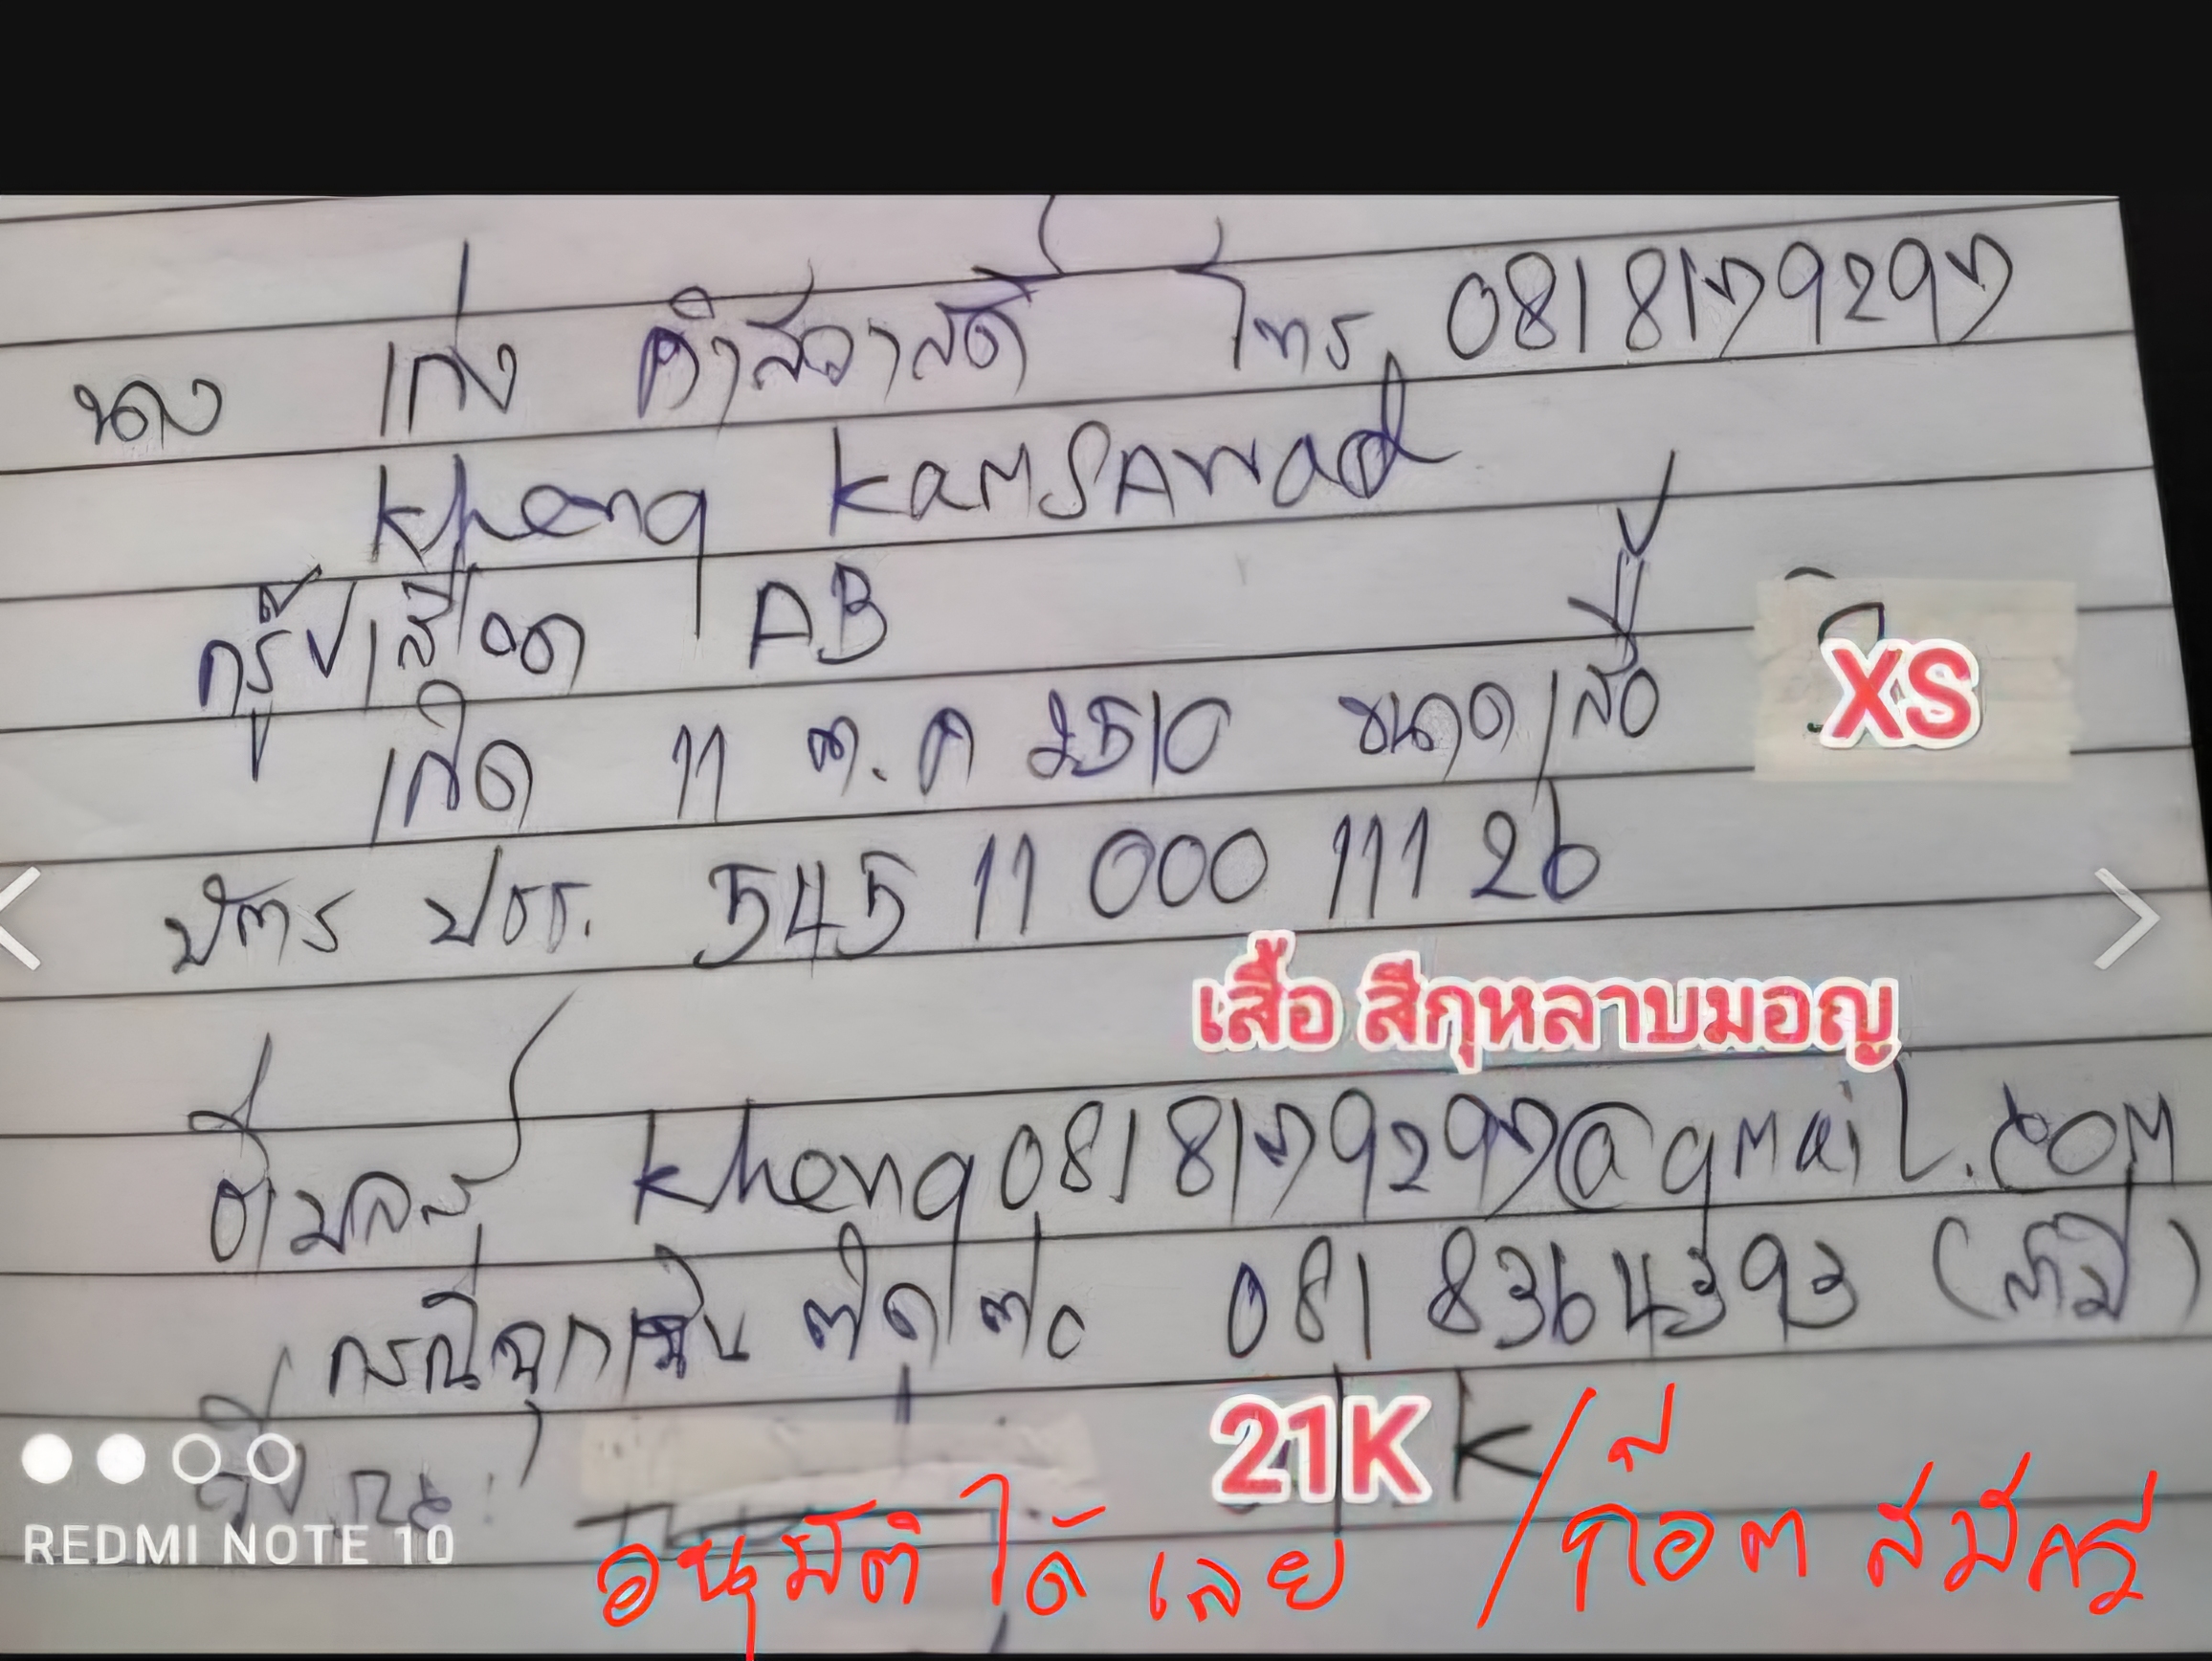 นาง เก่ง คำสวาสดิ์ โทร. 0818179297
Kheng KamSAwad
กรุ๊ปเลือด AB
เกิด 11 ต.ค 2510 ขนาดเสื้อ XS
บัตร ปชช. 545 11 000 111 26
เสื้อ สีกุหลาบมอญ
อีเมลล์ Kheng0818179297@gmail.com
กรณีฉุกเฉิน ติดต่อ 081 8364393 (สามี)
21K K
อนุมัติ ได้ เลย / ก๊อต สมัคร
REDMI NOTE 10